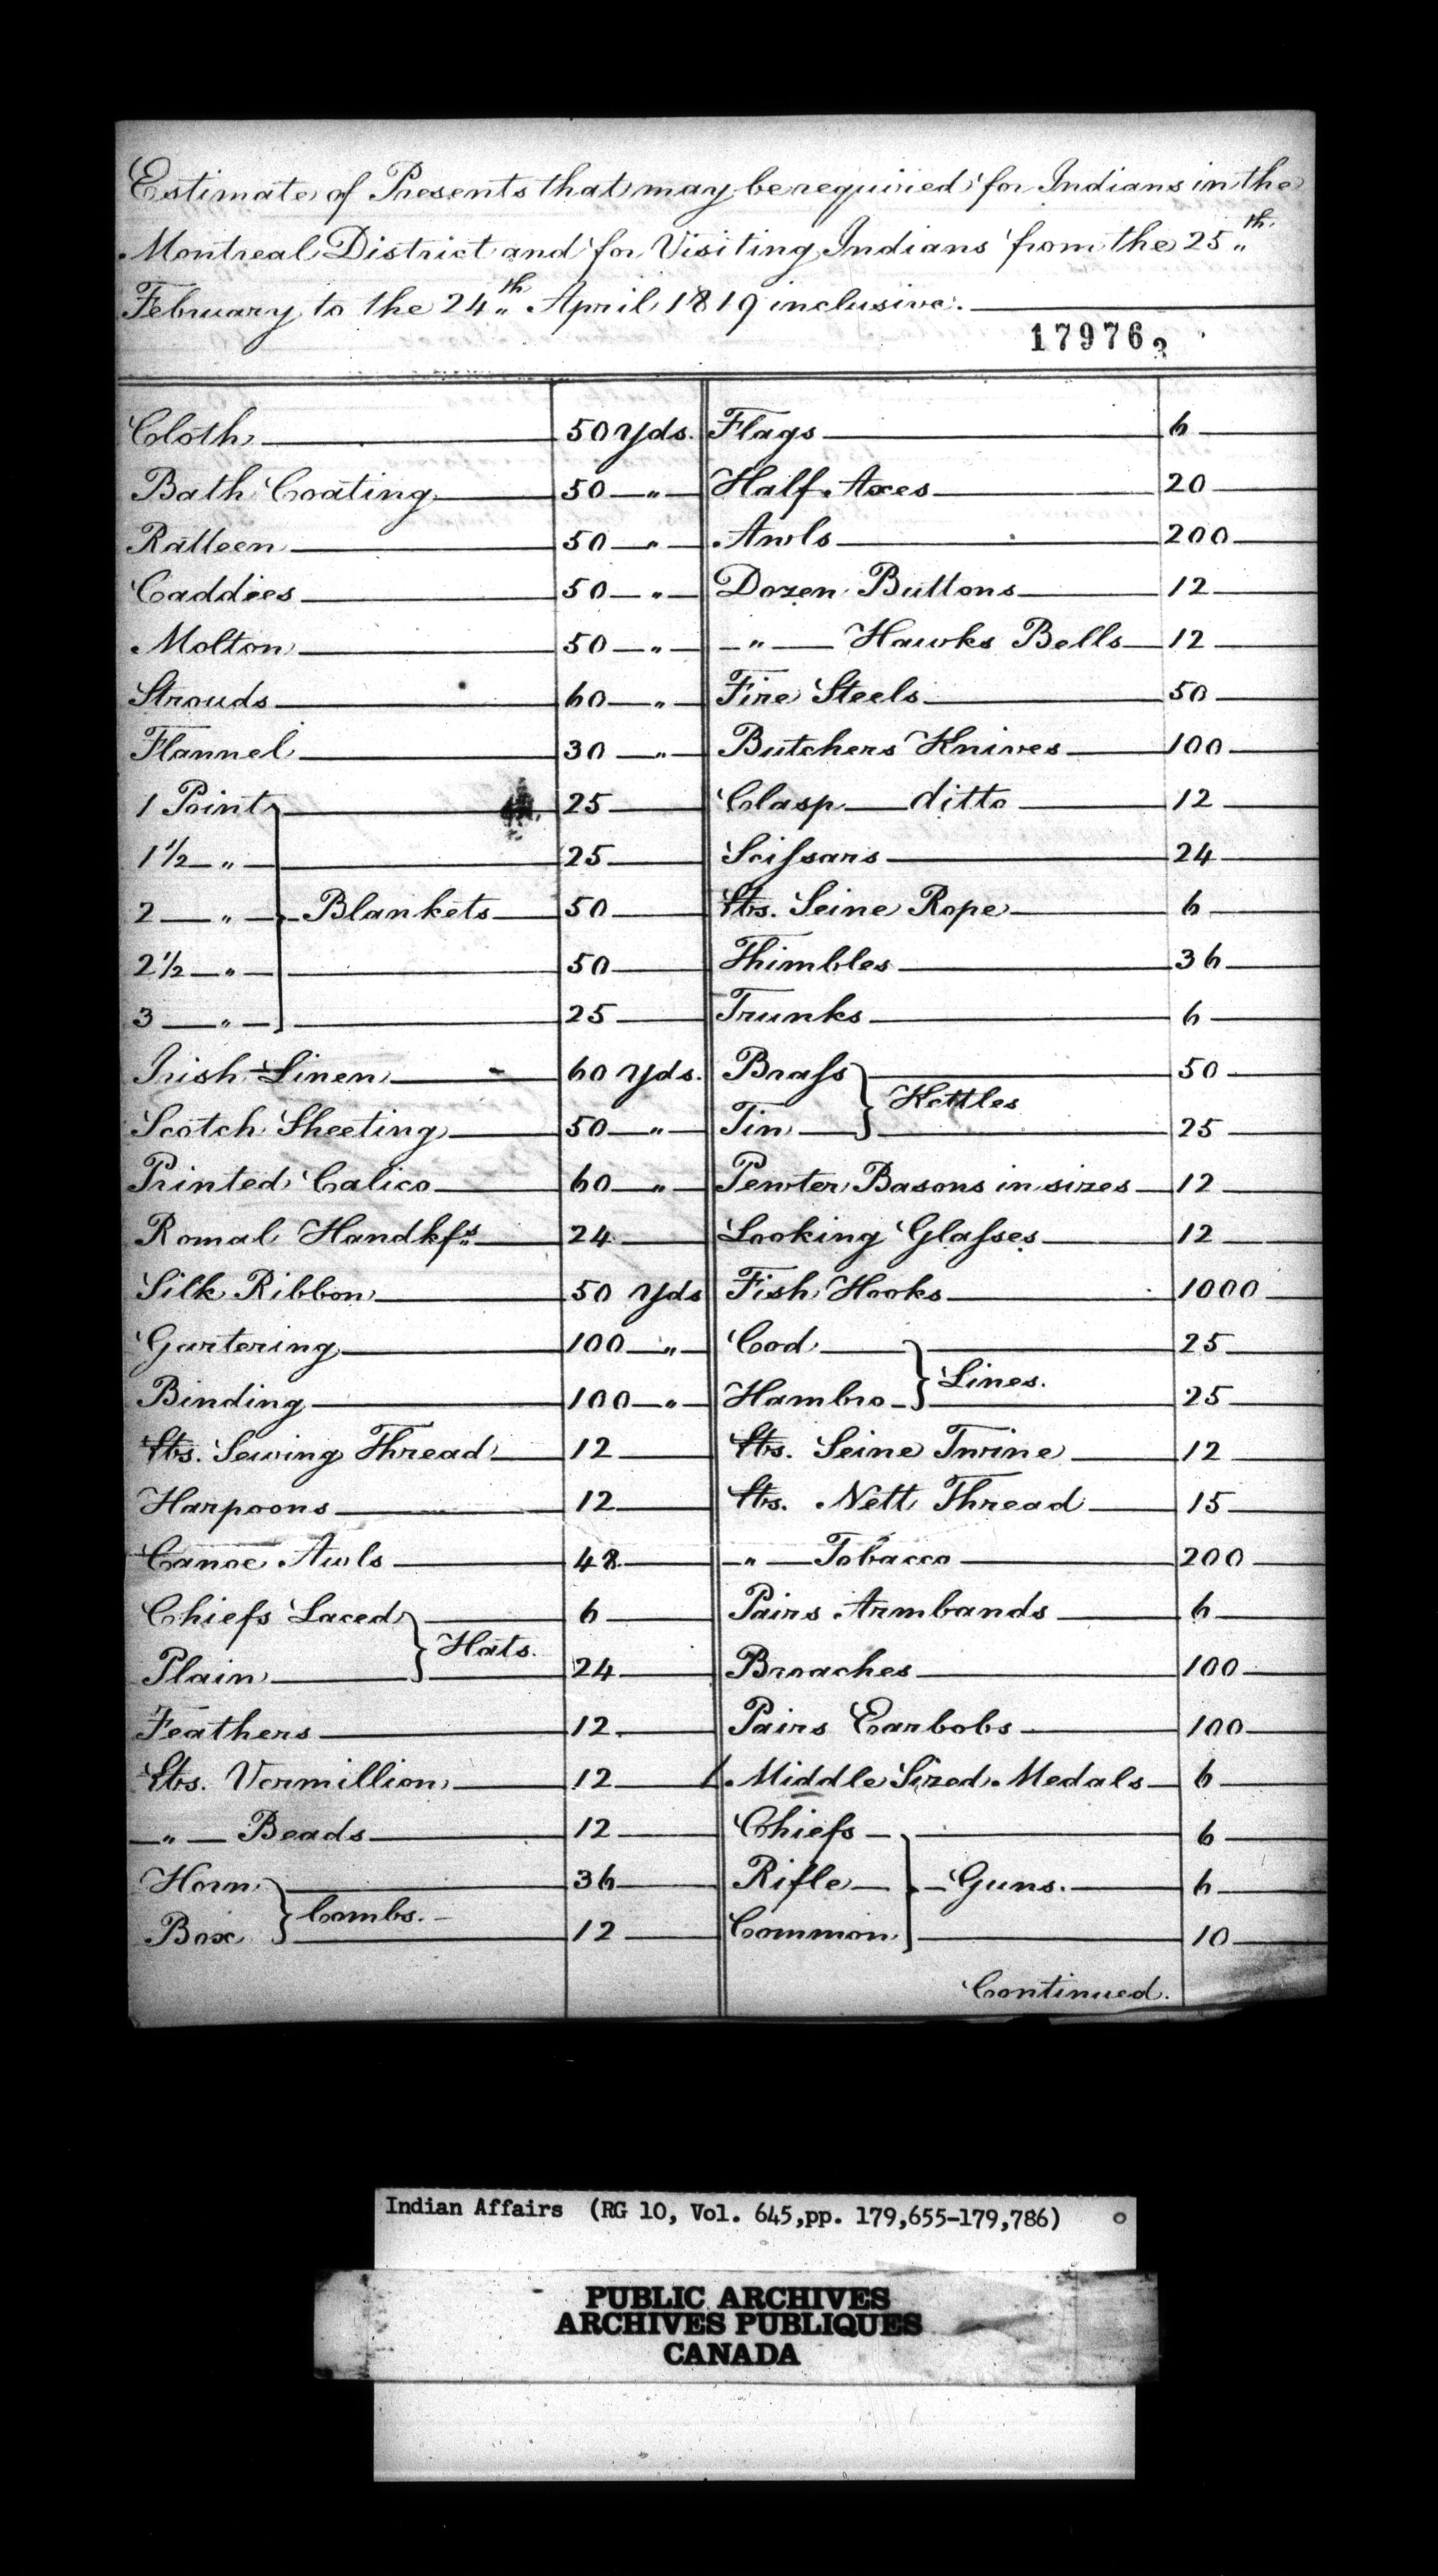 Estimate of Presents that may be required for Indians in the
Montreal District and for Visiting Indians from the 25th
February to the 24th April 1819 inclusive.
179763
Cloth 50 Yds.
Bath Coating 50 "
Ratteen 50 "
Caddies 50 "
Molton 50 "
Strouds 60 "
Flannel 30 "
1 Point 25
1½ " 25
2 " Blankets 50
2½ " 50
3 " 25
Irish Linen 60 Yds.
Scotch Sheeting 50 "
Printed Calico 60 "
Romal Handkfs 24
Silk Ribbon 50 Yds
Gartering 100 "
Binding 100 "
lbs. Sewing Thread 12
Harpoons 12
Canoe Awls 48
Chiefs Laced 6
Hats.
Plain 24
Feathers 12
lbs. Vermillion 12
" Beads 12
Horn 36
Combs.
Box 12
Flags 6
Half Axes 20
Awls 200
Dozen Buttons 12
" Hawks Bells 12
Fire Steels 50
Butchers Knives 100
Clasp ditto 12
Scissars 24
lbs. Seine Rope 6
Thimbles 36
Trunks 6
Brass 50
Kettles
Tin 25
Pewter Basons in sizes 12
Looking Glasses 12
Fish Hooks 1000
Cod 25
Lines.
Hambro 25
lbs. Seine Twine 12
lbs. Nett Thread 15
" Tobacco 200
Pairs Armbands 6
Broaches 100
Pairs Earbobs 100
Middle Sized Medals 6
Chiefs 6
Rifle Guns. 6
Common 10
Continued.
Indian Affairs (RG 10, Vol. 645,pp. 179,655-179,786)
PUBLIC ARCHIVES
ARCHIVES PUBLIQUES
CANADA